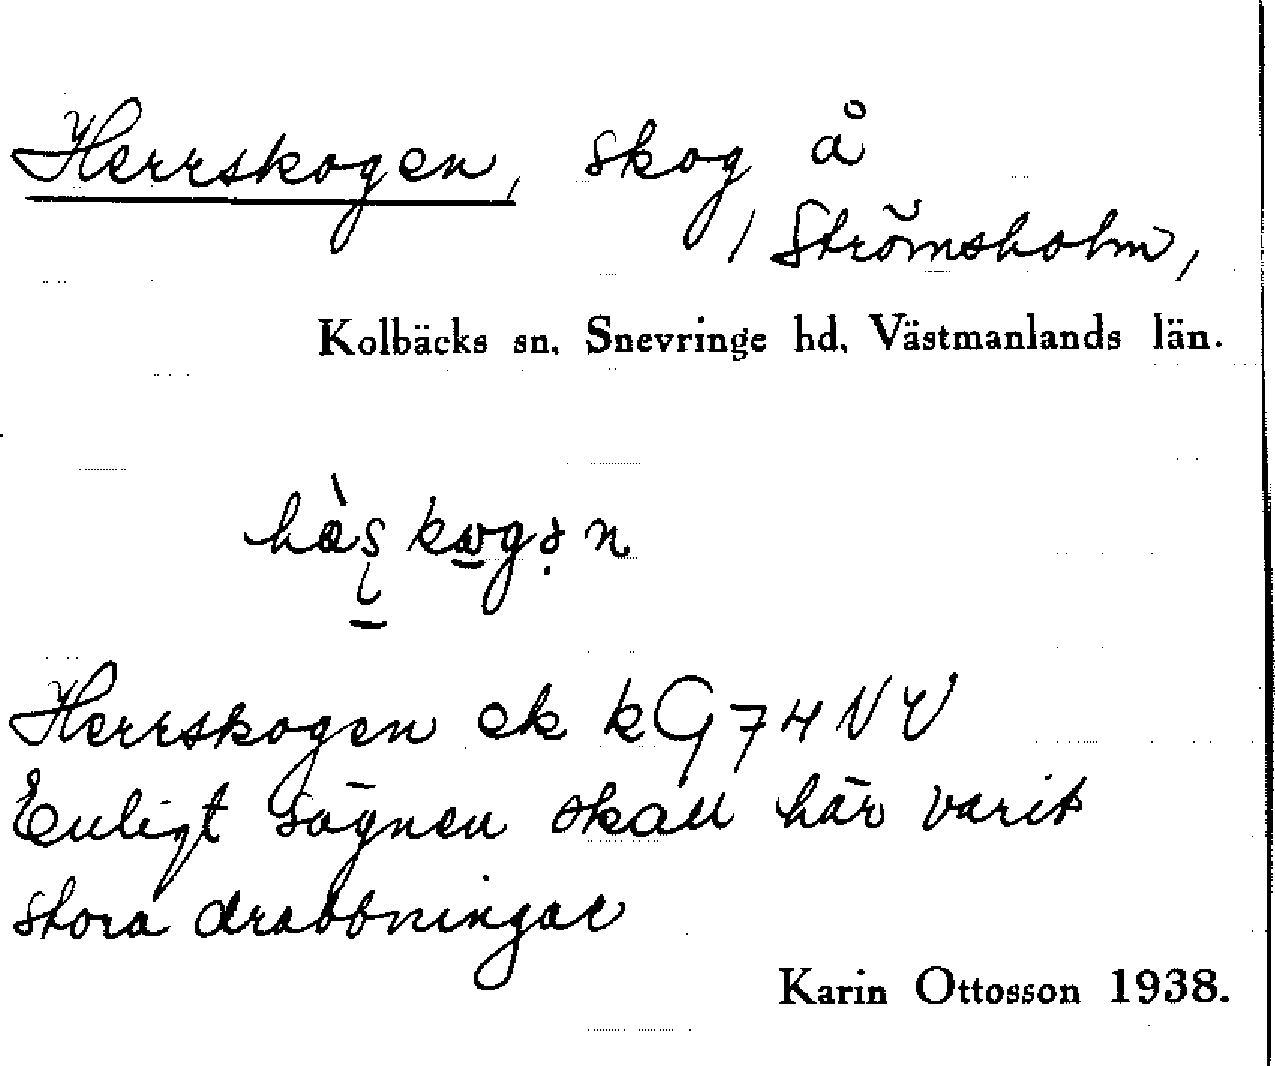 Herrskogen, skog å
Strömsholm,
Kolbäcks sn. Snevringe hd. Västmanlands län.
Herrskogen ek kG74NV
Enligt sägnen skall här varit
stora drabbningar
Karin Ottosson 1938.